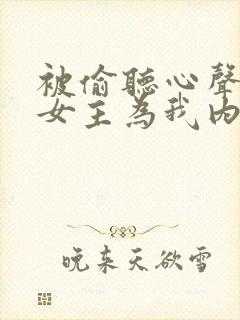 被偷聽心聲
女主為我內
晚來天欲雪